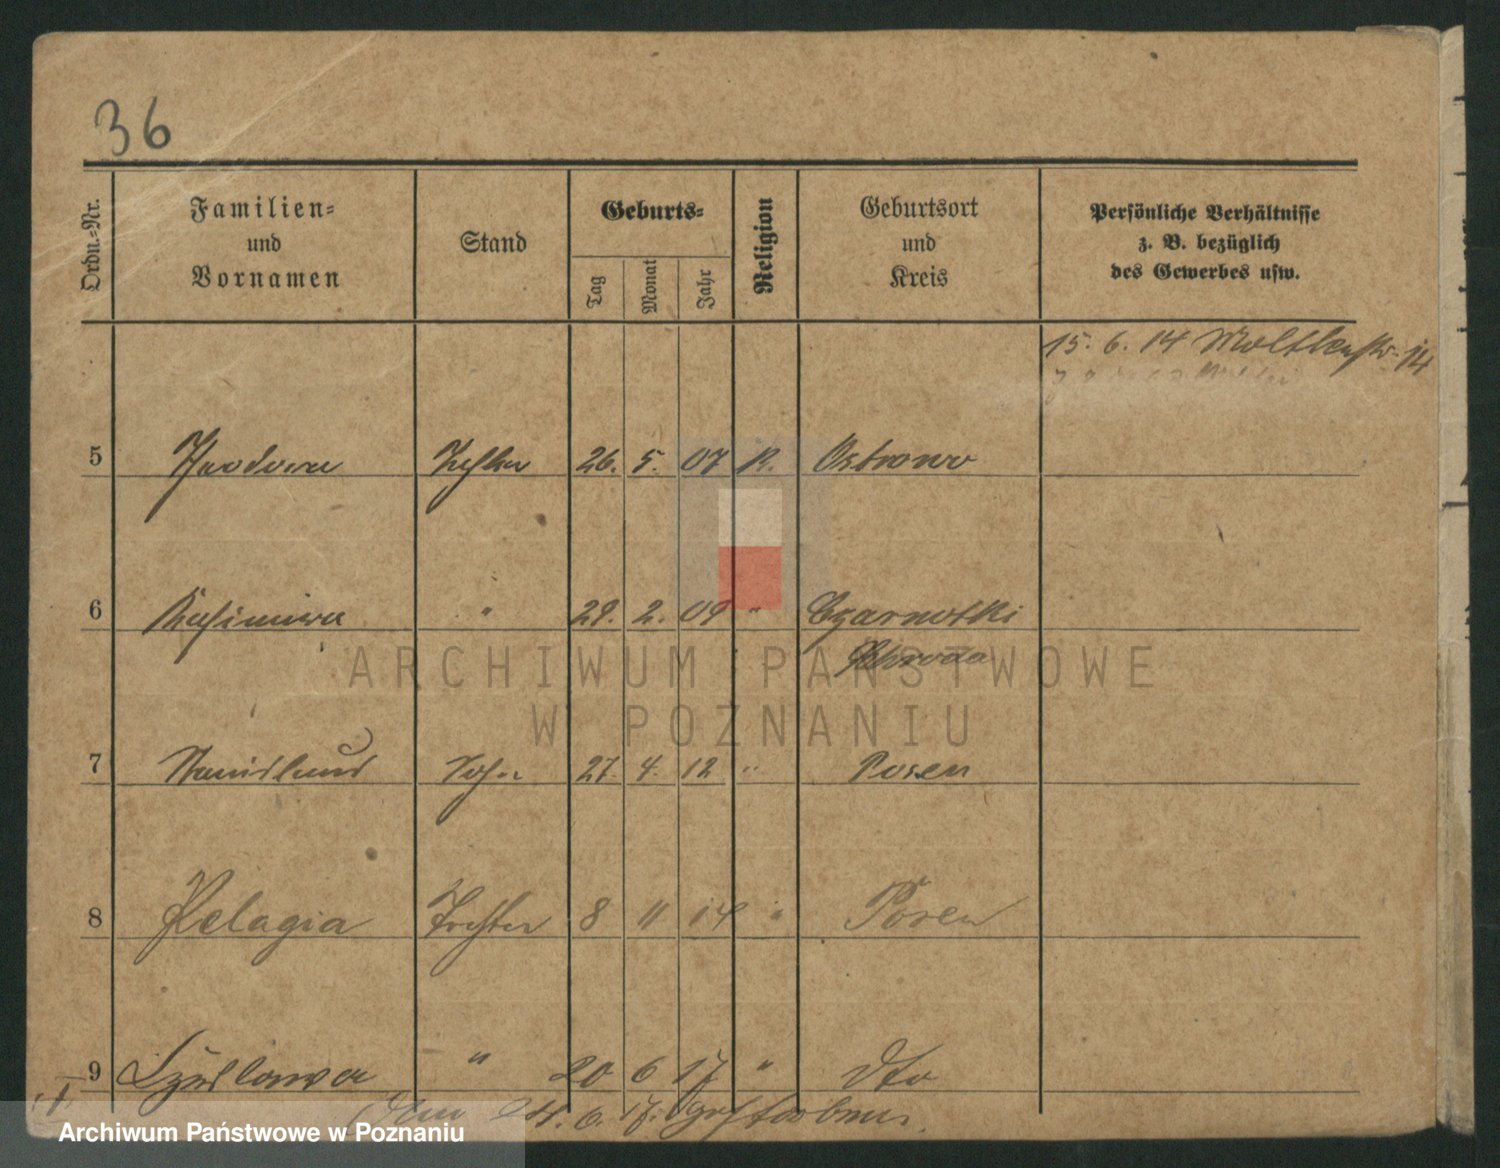 36
Ordn.-Nr.
Familien-
und
Vornamen
Stand
Geburts-
Tag
Monat
Jahr
Religion
Geburtsort
und
Kreis
Persönliche Verhältnisse
z. B. bezüglich
des Gewerbes usw.
15. 6. 14 Moltkestr. 14
5 Theodora Tochter 26. 5. 07 R. Ostrowo
6 Kasimira " 29. 2. 09 " Czarnotki
Schroda
7 Stanislaus Sohn 27. 4. 12 " Posen
8 Pelagia Tochter 8 11 14 " Posen
9 " 20 6 17 " dto
6. 17. gestorben.
ARCHIWUM PAŃSTWOWE
W POZNANIU
Archiwum Państwowe w Poznaniu